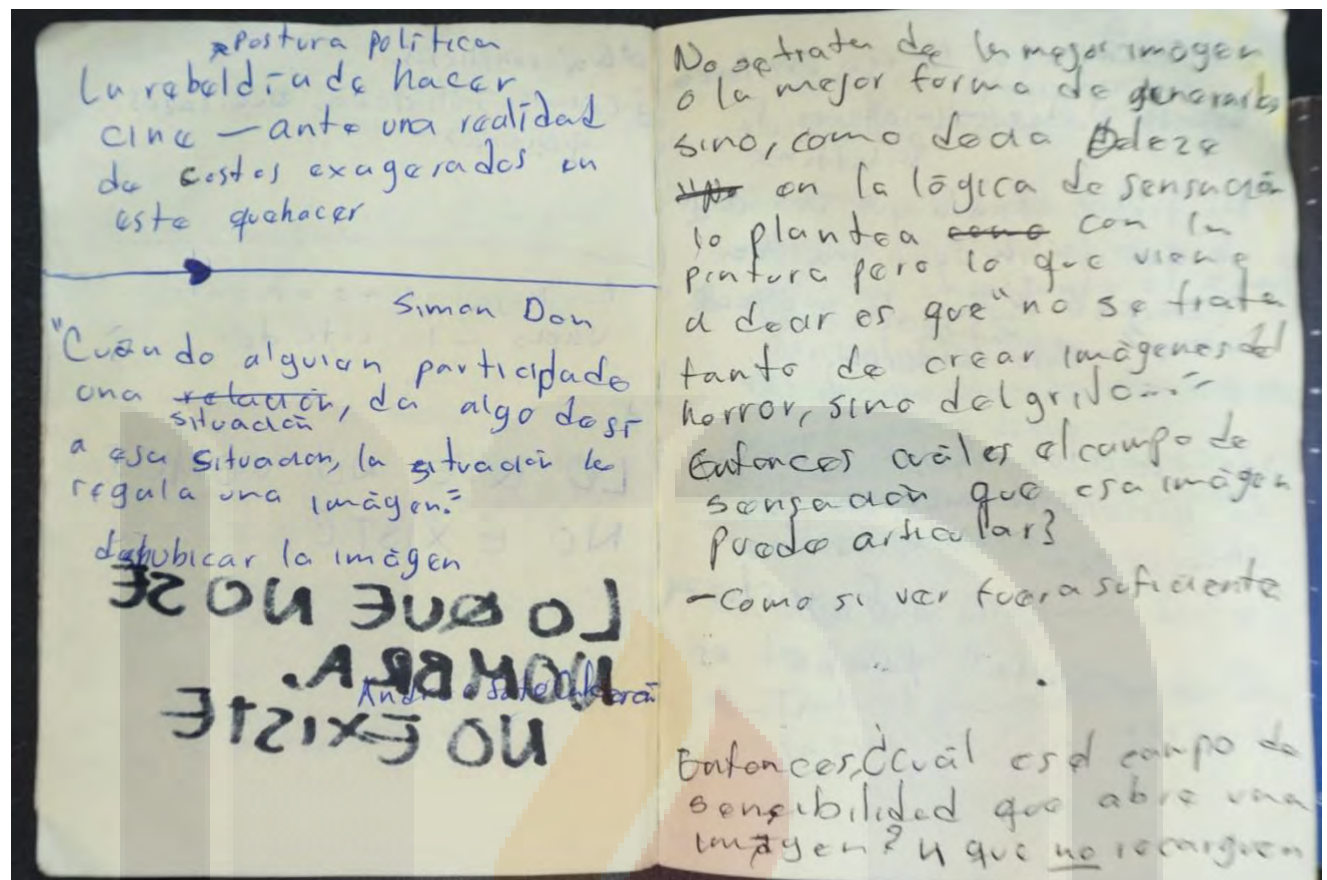 Postura política
La rebeldía de hacer
cine — ante una realidad
de costos exagerados en
este quehacer
Simon Don
"Cuándo alguien participa de
una relación, da algo de sí
situación
a esa situación, la situación le
regala una imágen."
desubicar la imágen
LO QUE NO SE
NOMBRA.
NO EXISTE
No se trata de la mejor imagen
o la mejor forma de generarlas
sino, como decía Deleze
en la lógica de sensación
lo plantea como con la
pintura pero lo que viene
a decir es que "no se trata
tanto de crear imágenes del
horror, sino del grito..."
Entonces cuál es el campo de
sensación que esa imágen
puede articular?
- Como si ver fuera suficiente
Entonces, ¿Cuál es el campo de
sensibilidad que abre una
imágen? y que no recarguen